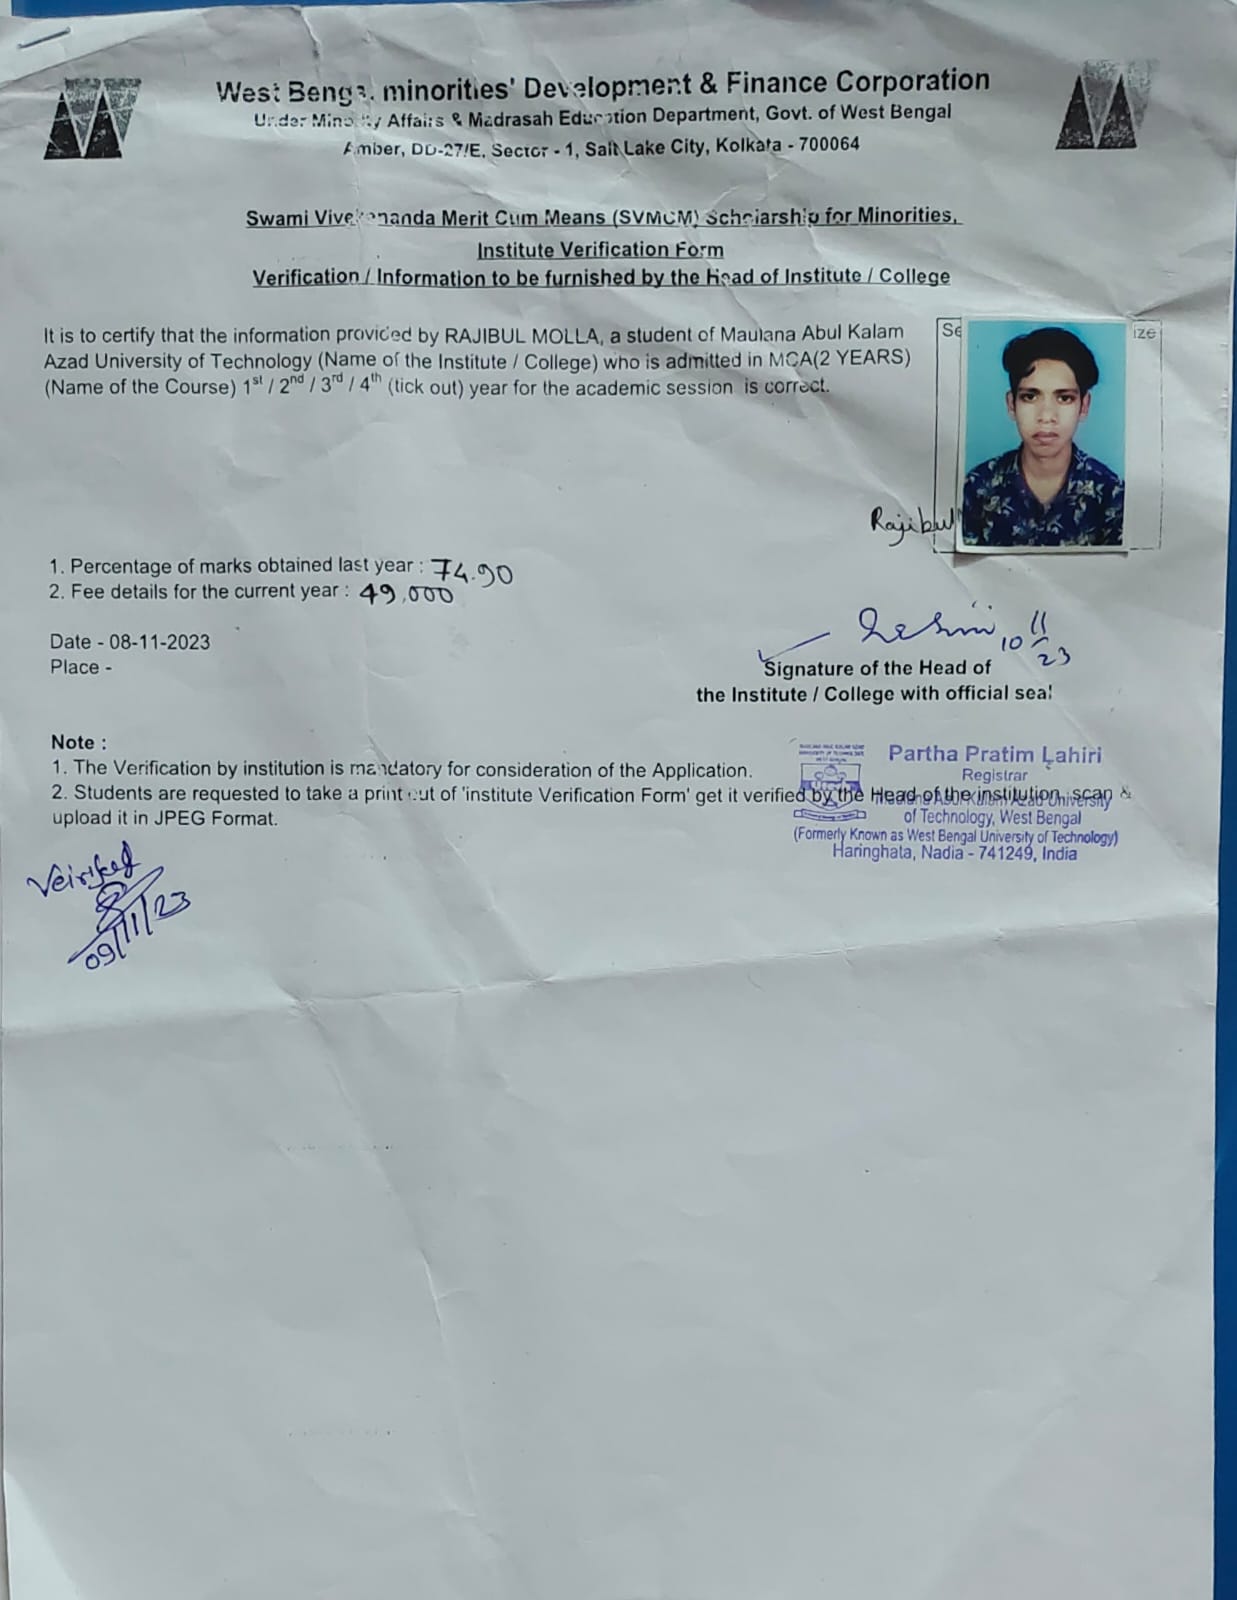 West Bengal minorities' Development & Finance Corporation
Under Minority Affairs & Madrasah Education Department, Govt. of West Bengal
Amber, DD-27/E, Sector - 1, Salt Lake City, Kolkata - 700064
Swami Vivekananda Merit Cum Means (SVMCM) Scholarship for Minorities.
Institute Verification Form
Verification / Information to be furnished by the Head of Institute / College
It is to certify that the information provided by RAJIBUL MOLLA, a student of Maulana Abul Kalam
Azad University of Technology (Name of the Institute / College) who is admitted in MCA(2 YEARS)
(Name of the Course) 1st / 2nd / 3rd / 4th (tick out) year for the academic session is correct.
Se
ize
Rajibul
1. Percentage of marks obtained last year : 74.90
2. Fee details for the current year : 49,000
Date - 08-11-2023
Place -
10 11/23
Signature of the Head of
the Institute / College with official seal
Note :
1. The Verification by institution is mandatory for consideration of the Application.
2. Students are requested to take a print out of 'institute Verification Form' get it verified by the Head of the institution, scan &
upload it in JPEG Format.
Partha Pratim Lahiri
Registrar
Azad University
of Technology, West Bengal
(Formerly Known as West Bengal University of Technology)
Haringhata, Nadia - 741249, India
09/11/23